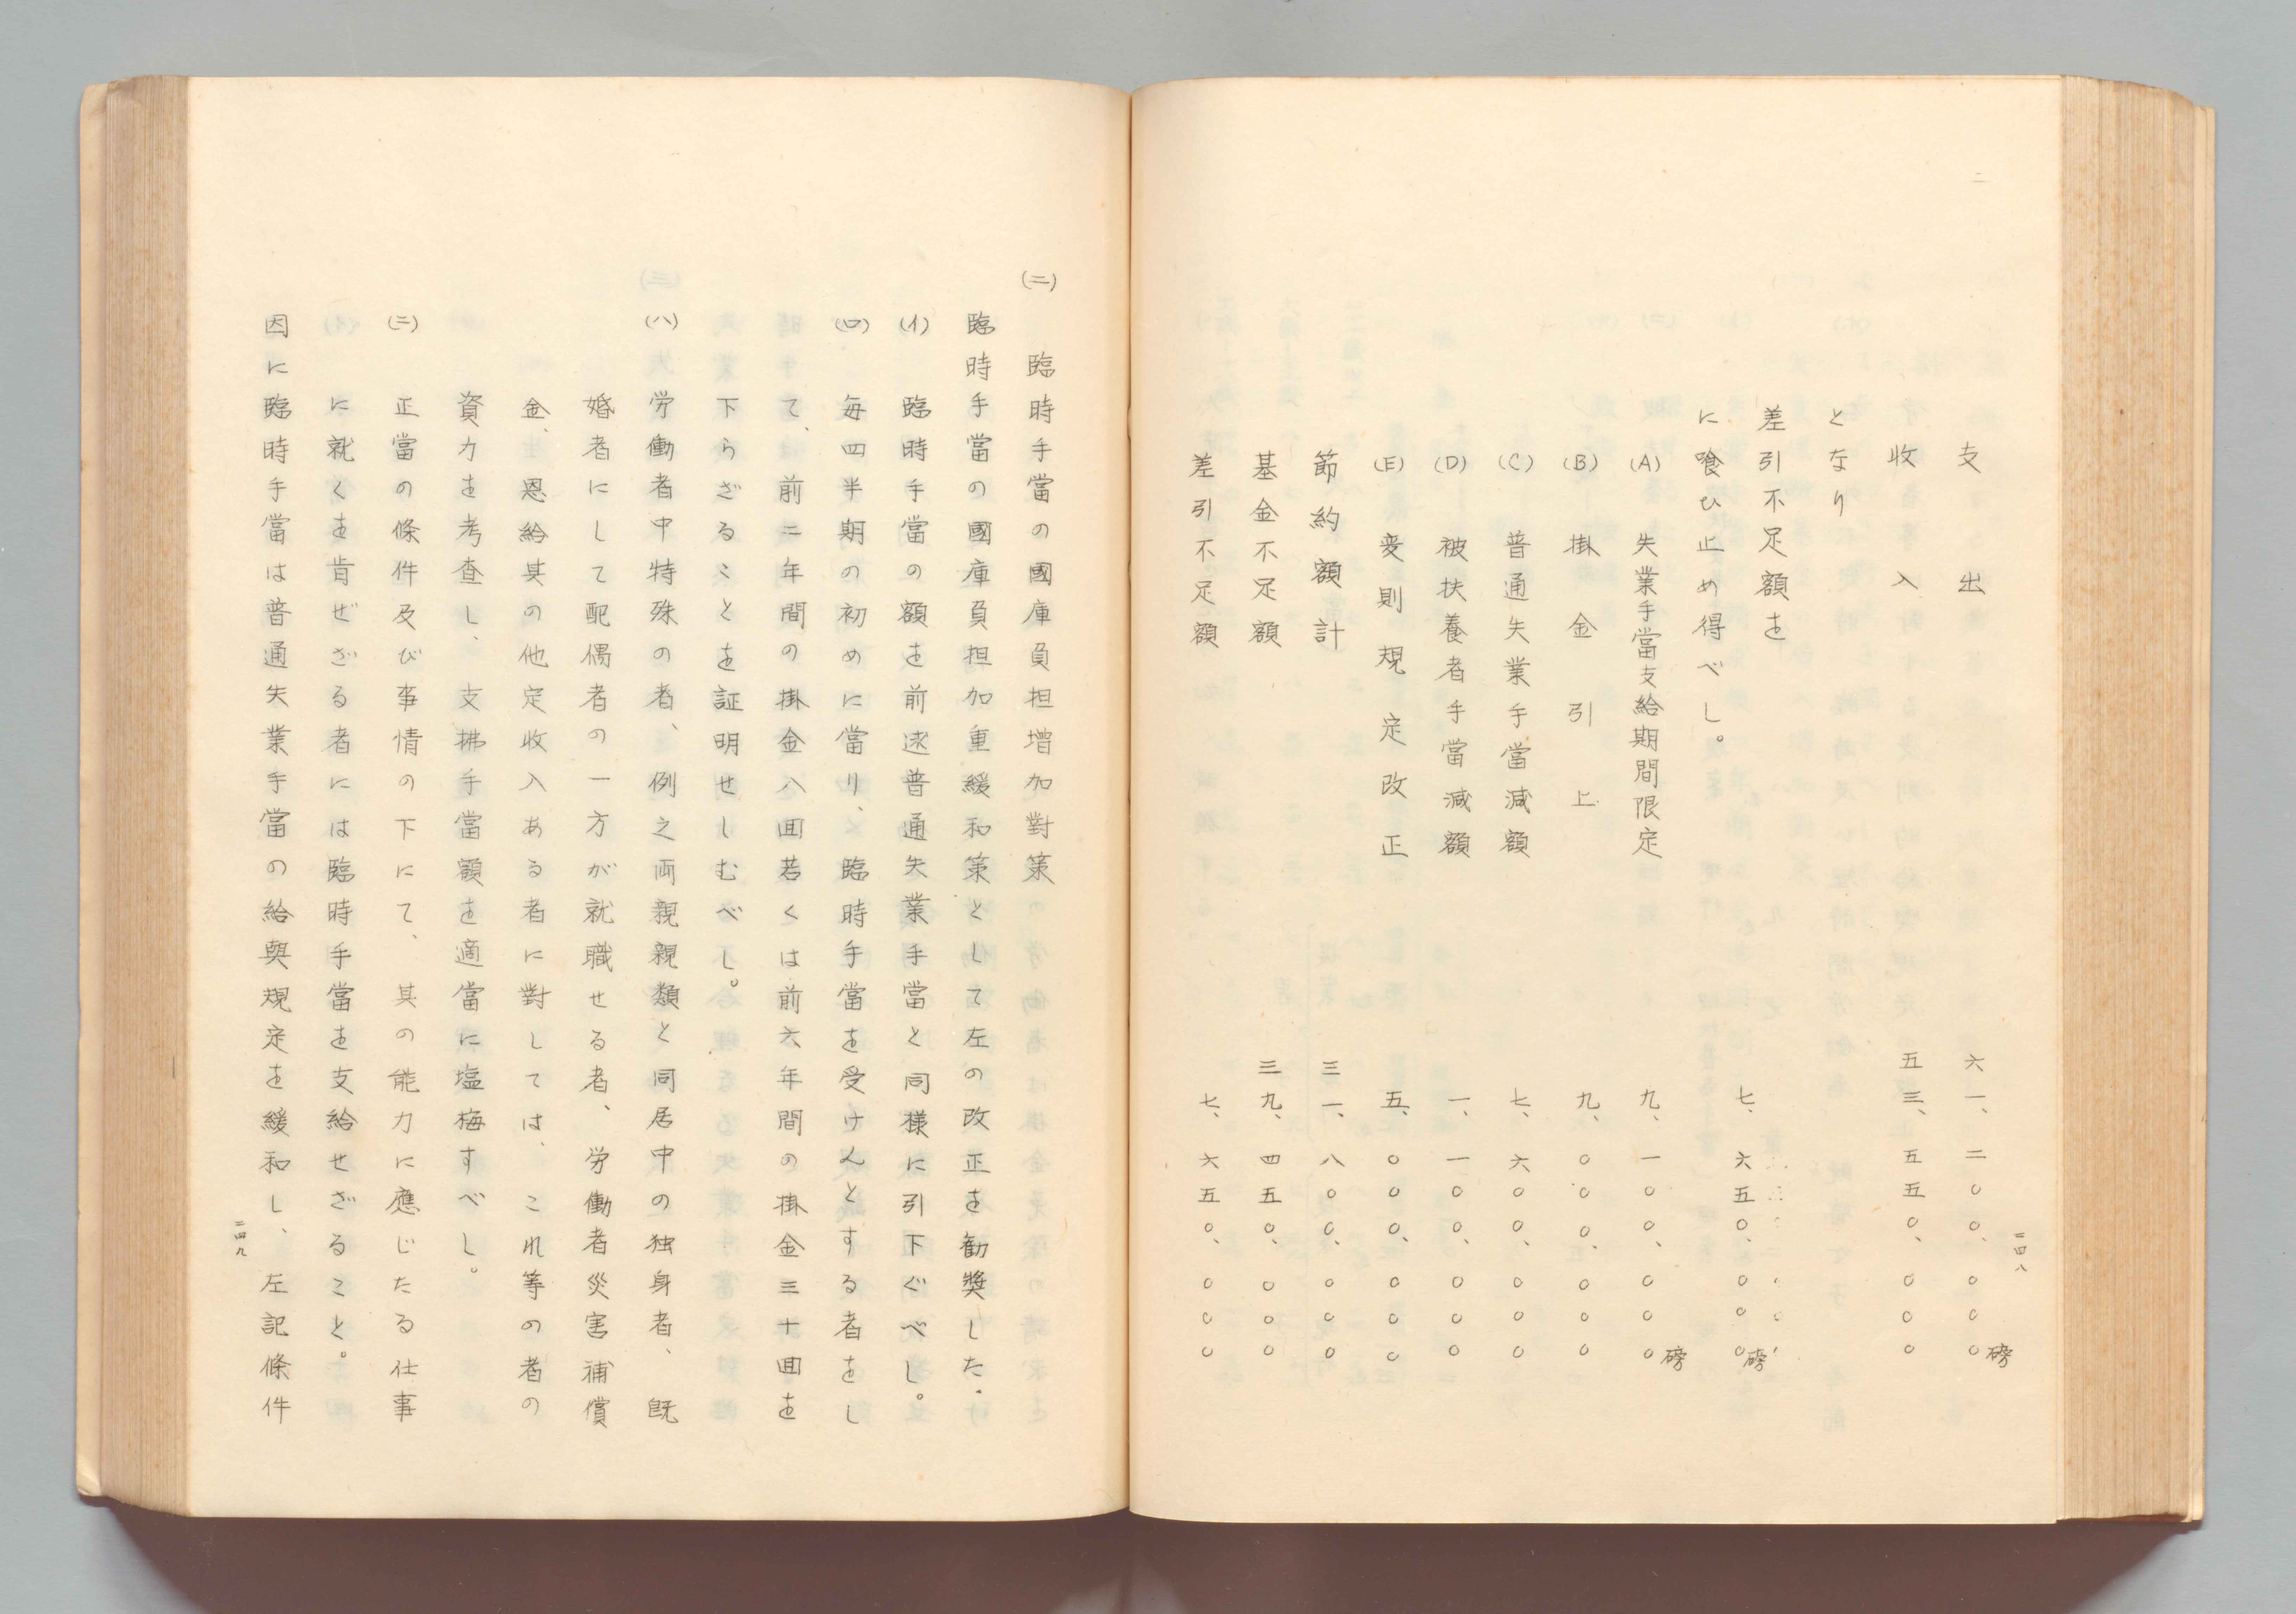 二四八
支出 六一、二〇〇、〇〇〇磅
收入 五三、五五〇、〇〇〇
となり
差引不足額を 七、六五〇、〇〇〇磅
に喰ひ止め得べし。
(A) 失業手當支給期間限定 九、一〇〇、〇〇〇磅
(B) 掛金引上 九、〇〇〇、〇〇〇
(C) 普通失業手當減額 七、六〇〇、〇〇〇
(D) 被扶養者手當減額 一、一〇〇、〇〇〇
(E) 変則規定改正 五、〇〇〇、〇〇〇
節約額計 三一、八〇〇、〇〇〇
基金不足額 三九、四五〇、〇〇〇
差引不足額 七、六五〇、〇〇〇
(二) 臨時手當の國庫負担増加對策
臨時手當の國庫負担加重緩和策として左の改正を勧奬した.
(イ) 臨時手當の額を前述普通失業手當と同様に引下ぐべし。
(ロ) 毎四半期の初めに當り、臨時手當を受けんとする者をし
て、前二年間の掛金八回若くは前六年間の掛金三十回を
下らざることを証明せしむべし。
(ハ) 労働者中特殊の者、例之両親親類と同居中の独身者、既
婚者にして配偶者の一方が就職せる者、労働者災害補償
金、恩給其の他定收入ある者に對しては、これ等の者の
資力を考査し、支拂手當額を適當に塩梅すべし。
(ニ) 正當の條件及び事情の下にて、其の能力に應じたる仕事
に就くを肯ぜざる者には臨時手當を支給せざること。
因に臨時手當は普通失業手當の給與規定を緩和し、左記條件
二四九